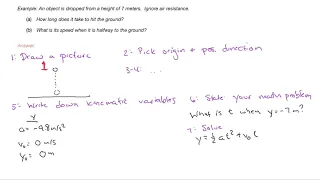 Example: An object is dropped from a height of 7 meters. Ignore air resistance.
(a) How long does it take to hit the ground?
(b) What is its speed when it is halfway to the ground?
Answer:
1: Draw a picture
2: Pick origin + pos. direction
3-4: ...
5: Write down kinematic variables
y
a = -9.8 m/s²
v₀ = 0 m/s
y₀ = 0 m
6: State your math problem
What is t when y = -7m?
7: Solve
y = ½at² + v₀t